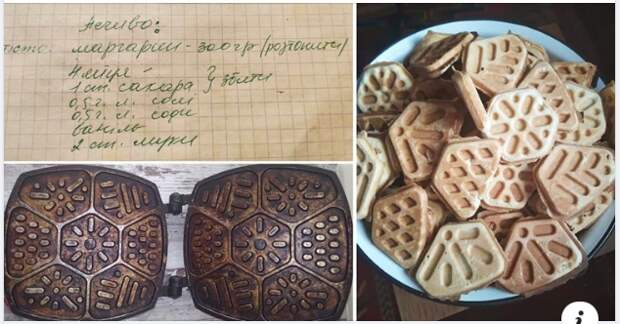 Печиво:
тісто. маргарин - 200гр (розтопити)
4 яйця
1 ст. сахара } збити
0,5 ч. л. соли
0,5 ч. л. соди
ваніль
2 ст. муки